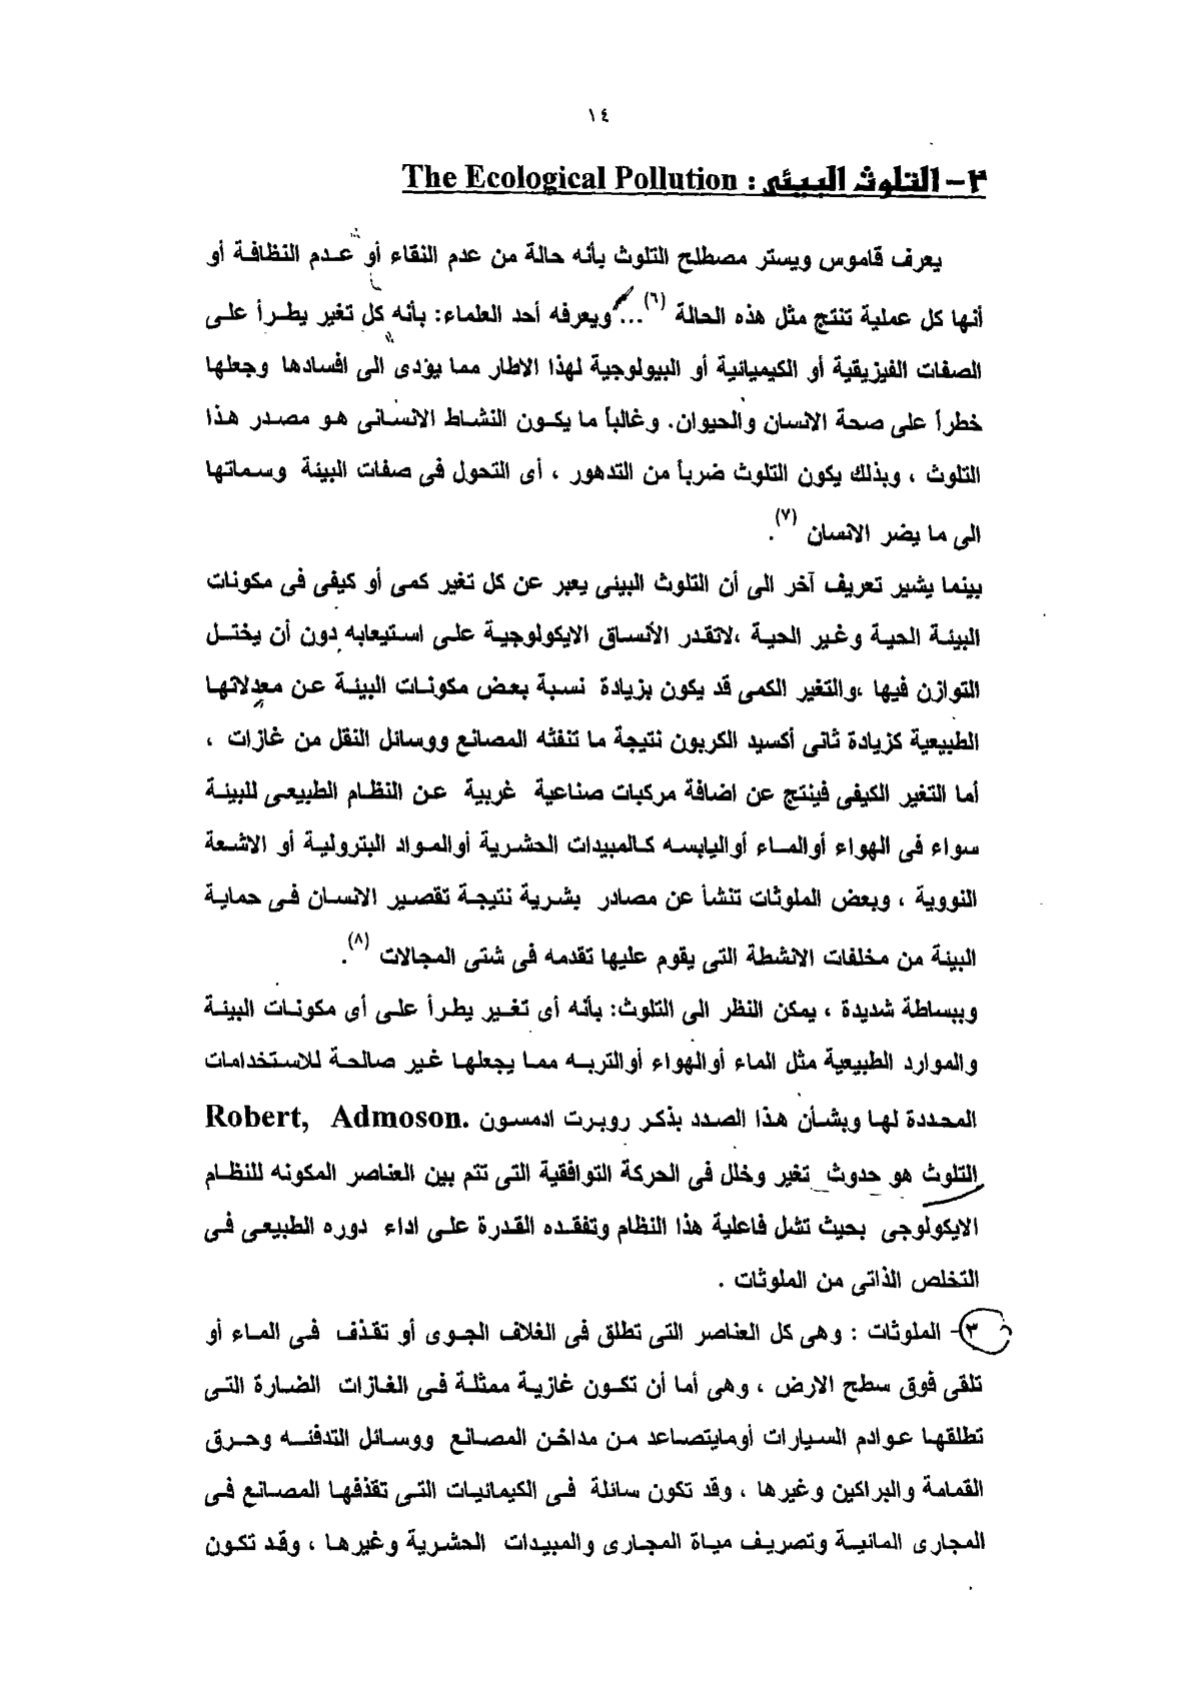 ١٤
٣- التلوث البيئى : The Ecological Pollution
يعرف قاموس ويستر مصطلح التلوث بأنه حالة من عدم النقاء أو عدم النظافة أو
أنها كل عملية تنتج مثل هذه الحالة (٦)... ويعرفه أحد العلماء: بأنه كل تغير يطرأ على
الصفات الفيزيقية أو الكيميائية أو البيولوجية لهذا الاطار مما يؤدى الى افسادها وجعلها
خطرأ على صحة الانسان والحيوان. وغالبأ ما يكون النشاط الانسانى هو مصدر هذا
التلوث ، وبذلك يكون التلوث ضربأ من التدهور ، أى التحول فى صفات البيئة وسماتها
الى ما يضر الانسان (٧).
بينما يشير تعريف آخر الى أن التلوث البيئى يعبر عن كل تغير كمى أو كيفى فى مكونات
البيئة الحية وغير الحية ،لاتقدر الأنساق الايكولوجية على استيعابه دون أن يختل
التوازن فيها ،والتغير الكمى قد يكون بزيادة نسبة بعض مكونات البيئة عن معدلاتها
الطبيعية كزيادة ثانى أكسيد الكربون نتيجة ما تنفثه المصانع ووسائل النقل من غازات ،
أما التغير الكيفى فينتج عن اضافة مركبات صناعية غريبة عن النظام الطبيعى للبيئة
سواء فى الهواء أوالماء أواليابسه كالمبيدات الحشرية أوالمواد البترولية أو الاشعة
النووية ، وبعض الملوثات تنشأ عن مصادر بشرية نتيجة تقصير الانسان فى حماية
البيئة من مخلفات الانشطة التى يقوم عليها تقدمه فى شتى المجالات (٨).
وببساطة شديدة ، يمكن النظر الى التلوث: بأنه أى تغير يطرأ على أى مكونات البيئة
والموارد الطبيعية مثل الماء أوالهواء أوالتربه مما يجعلها غير صالحة للاستخدامات
المحددة لها وبشأن هذا الصدد بذكر روبرت ادمسون Robert, Admoson.
التلوث هو حدوث تغير وخلل فى الحركة التوافقية التى تتم بين العناصر المكونه للنظام
الايكولوجى بحيث تشل فاعلية هذا النظام وتفقده القدرة على اداء دوره الطبيعى فى
التخلص الذاتى من الملوثات .
٣- الملوثات : وهى كل العناصر التى تطلق فى الغلاف الجوى أو تقذف فى الماء أو
تلقى فوق سطح الارض ، وهى أما أن تكون غازية ممثلة فى الغازات الضارة التى
تطلقها عوادم السيارات أومايتصاعد من مداخن المصانع ووسائل التدفئه وحرق
القمامة والبراكين وغيرها ، وقد تكون سائلة فى الكيمائيات التى تقذفها المصانع فى
المجارى المائية وتصريف مياة المجارى والمبيدات الحشرية وغيرها ، وقد تكون